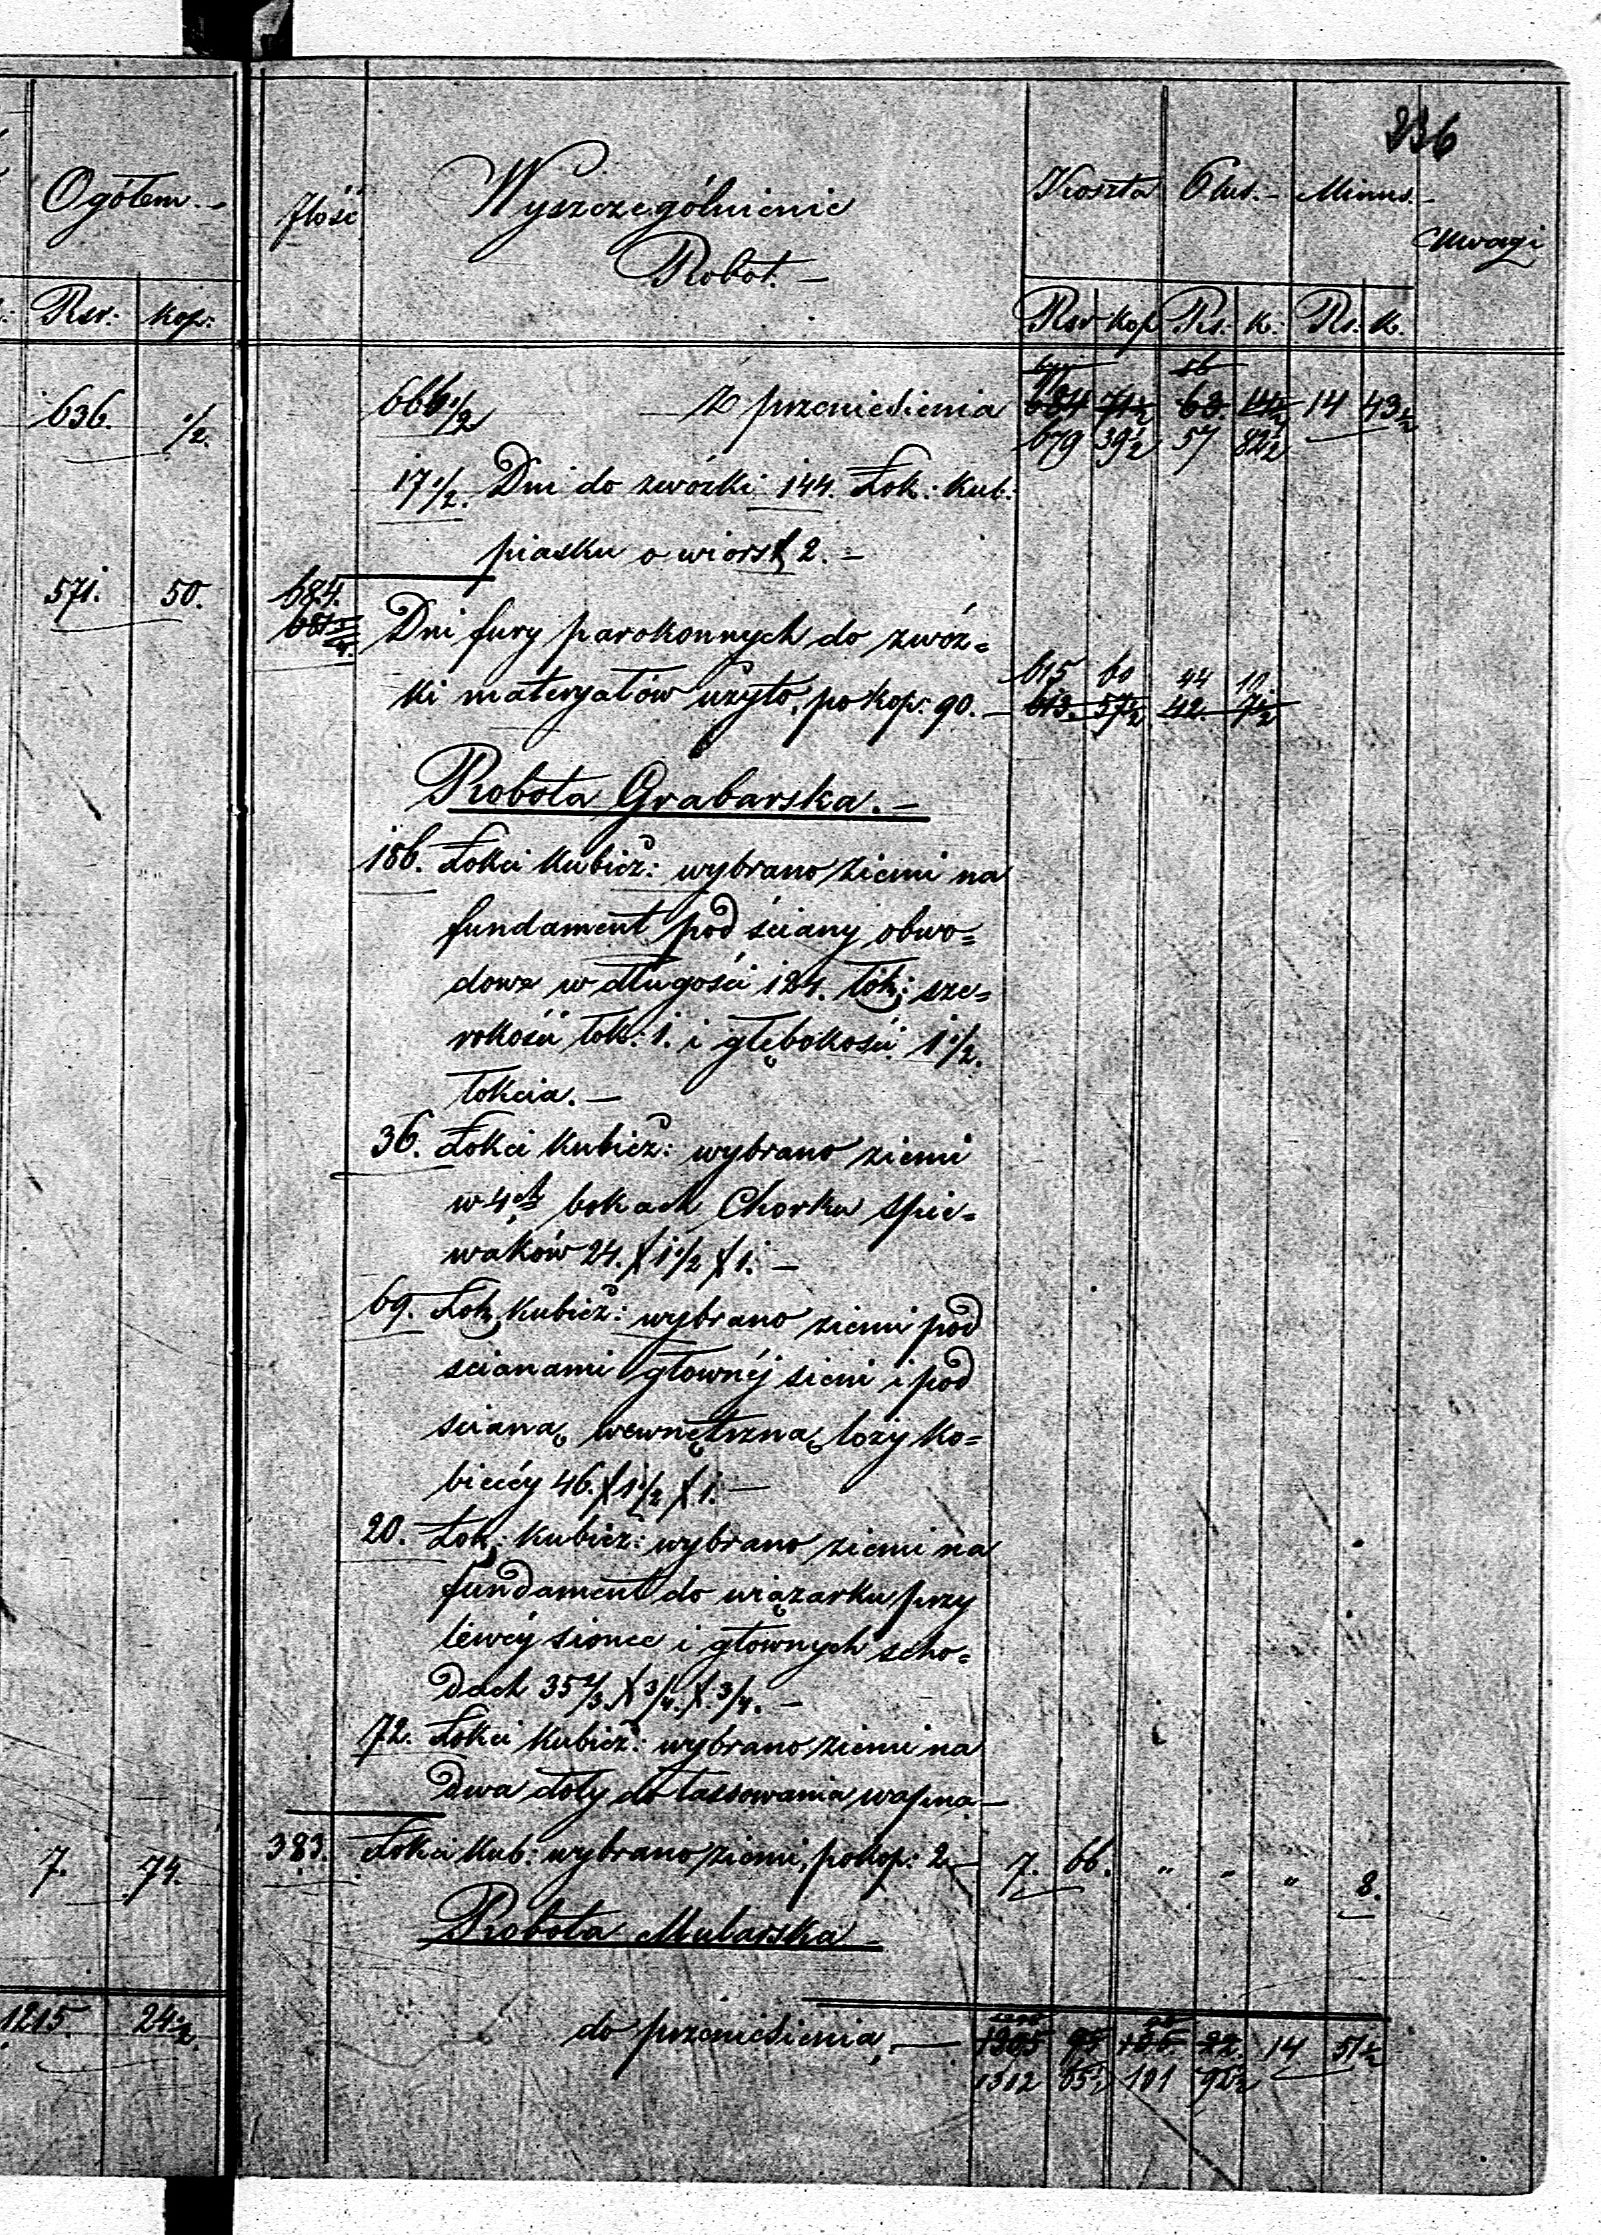 236
Ogółem.-
Rsr: kop:
636. 1/2.
571. 50.
7. 74.
1215. 24 1/2.
Ilość Wyszczególnienie Robot.- Koszta Plus.- Minus.- Uwagi
Rsr kop Rs.- k: Rs: k.
666 1/2 Z przeniesienia 684 71 1/2 63. 14 1/2 14 43 1/2
679 39 1/2 57 82 1/2
17 1/2. Dni do zwózki 144. Łok: kub:
piasku o wiorst 2.-
684.
Dni fury parokonnych do zwóz=
ki materyałów użyto, po kop: 90.- 615 60 44 10
613. 57 1/2 42. 7 1/2
Robota Grabarska.-
186. Łokci kubicz: wybrano ziemi na
fundament pod ściany obwo=
dowe w długości 124. łok: sze=
rokości łok: 1. i głębokości 1 1/2.
łokcia.-
36. Łokci kubicz: wybrano ziemi
w 4ch bokach Chorku Spie=
waków 24. X 1 1/2 X 1.-
69. Łok, kubicz: wybrano ziemi pod
scianami głownéj sieni i pod
scianą wewnętrzną loży ko=
biecéy 46. X 1 1/2 X 1.-
20. Łok: kubicz: wybrano ziemi na
fundament do wiązarku przy
léwéy sionce i głownych scho=
dach 35 2/3. X 3/4. X 3/4.-
72. Łokci kubicz: wybrano ziemi na
dwa doły do lassowania wapna-
383. Łokci kub: wybrano ziemi, po kop: 2.- 7. 66. " " " 8.
Robota Mularska-
do przeniesienia,- 1305 22. 14 51 1/2
1302 65 1/2 101 92 1/2